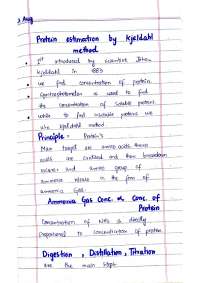 2 Aug
Protein estimation by kjeldahl
method
1st introduced by scientist Johan
kjeldahl in 1883
we find concentration of protein.
Spectrophotometer is used to find
the concentration of soluble proteins
while to find insoluble proteins we
use kjeldahl method
Principle - Protein's
Main target are amino acids. These
acids are oxidised and then breakdown
occurs and amino group of
ammonia release in the form of
ammonia Gas.
Ammonia Gas Conc. ∝ Conc. of
Protein
Concentration of NH3 is directly
Proportional to concentration of protein
Digestion, Distillation, Titration
are the main steps